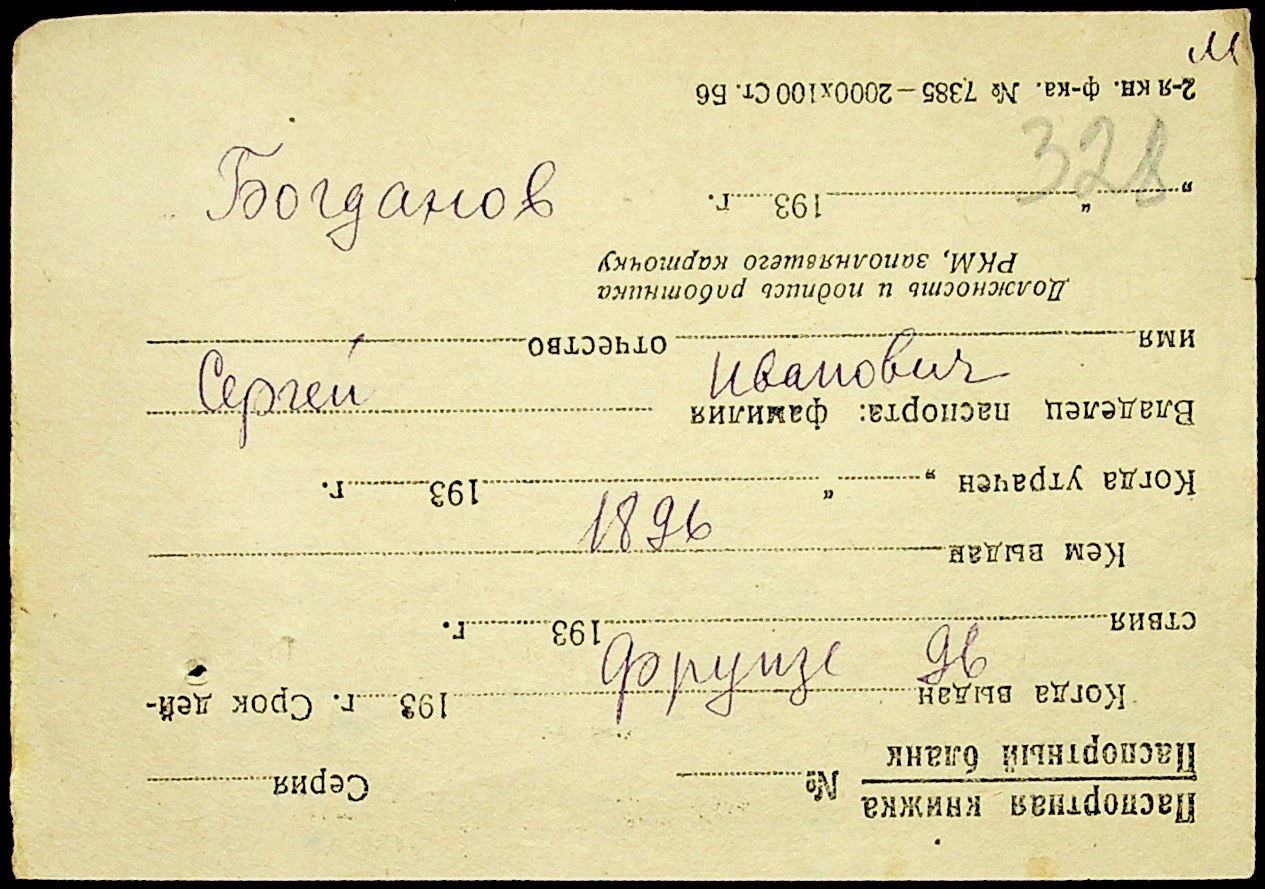 м
328
Богданов
Сергей Иванович
1896
Фрунзе 96
Паспортная книжка № Серия
Паспортный бланк
Когда выдан 193 г. Срок дей-
ствия 193 г.
Кем выдан
Когда утрачен „ “ 193 г.
Владелец паспорта: фамилия
имя отчество
Должность и подпись работника
РКМ, заполнявшего карточку
„ “ 193 г.
2-я кн. ф-ка. № 7385—2000х100 Ст. Б6